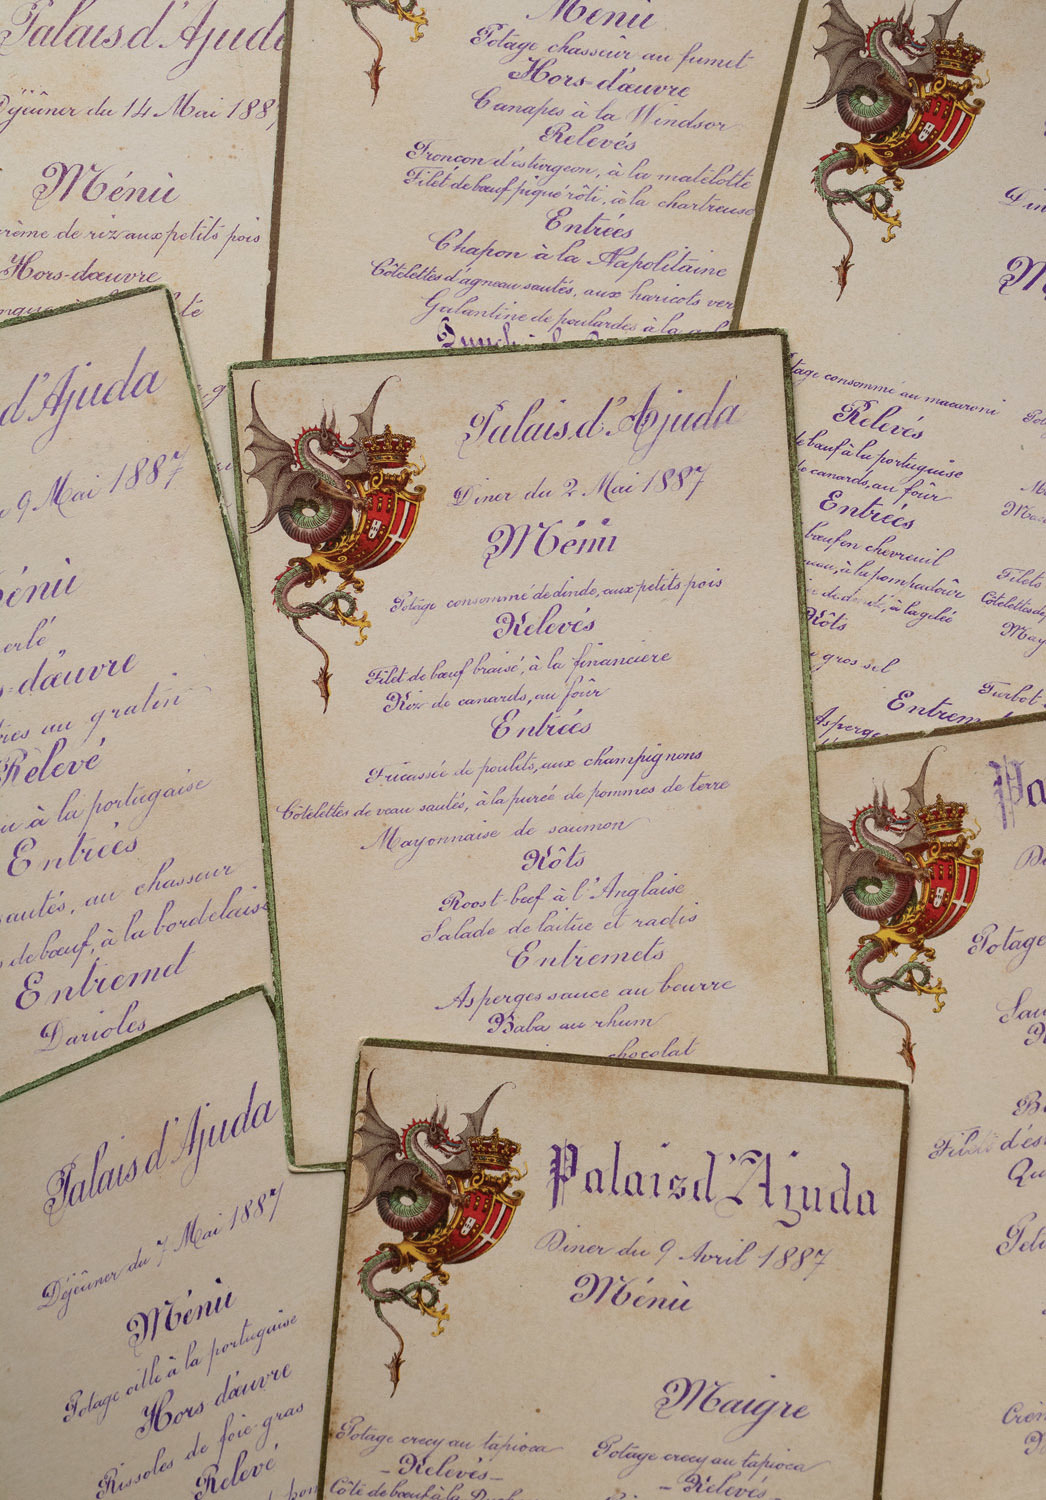 Palais d'Ajuda
Déjeûner du 14 Mai 188
Ménù
rème de riz aux petits pois
Hors-dœuvre
Menù
Potage chasseùr au fumet
Hors-dœuvre
Canapes à la Windsor
Relevés
Troncon d'esturgeon, à la matelotte
Filet de bœuf piqué rôti, à la chartreuse
Entrées
Chapon à la Napolitaine
Côtelettes d'agneau sautés, aux haricots ver
Galantine de poulardes à la
Din
tage consommé au macaroni
Relevés
bœuf à la portuguise
de canards, au fôur
Entrées
bœuf en chevreuil
à la pompadoûr
à la gelée
Rôts
gros sel
Entrem
Asperge
Filets
Côtelettes
May
Turbot
d'Ajuda
9 Mai 1887
énù
erlé
s-dœuvre
res au gratin
Rèlevé
à la portugaise
Entrées
sautés, au chasseur
de bœuf, à la bordelaise
Entremet
Darioles
Palais d'Ajuda
Diner du 2 Mai 1887
Ménù
Potage consommé de dinde, aux petits pois
Relevés
Filet de bœuf braisé, à la financiere
Riz de canards, au fôur
Entrées
Fricassée de poulets, aux champignons
Côtelettes de veau sautés, à la purée de pommes de terre
Mayonnaise de saumon
Rôts
Roost-beef à l'Anglaise
Salade de laitue et radis
Entremets
Asperges sauce au beurre
Baba au rhum
chocolat
Pa
Potage
Palais d'Ajuda
Déjeûner du 7 Mai 1887
Ménù
Potage oille à la portugaise
Hors d'œuvre
Rissoles de foie-gras
Relevé
Palais d'Ajuda
Diner du 9 Avril 1887
Ménù
Potage crecy au tapioca
-Relevés-
Côte de bœuf à la
Maigre
Potage crecy au tapioca
-Relevés